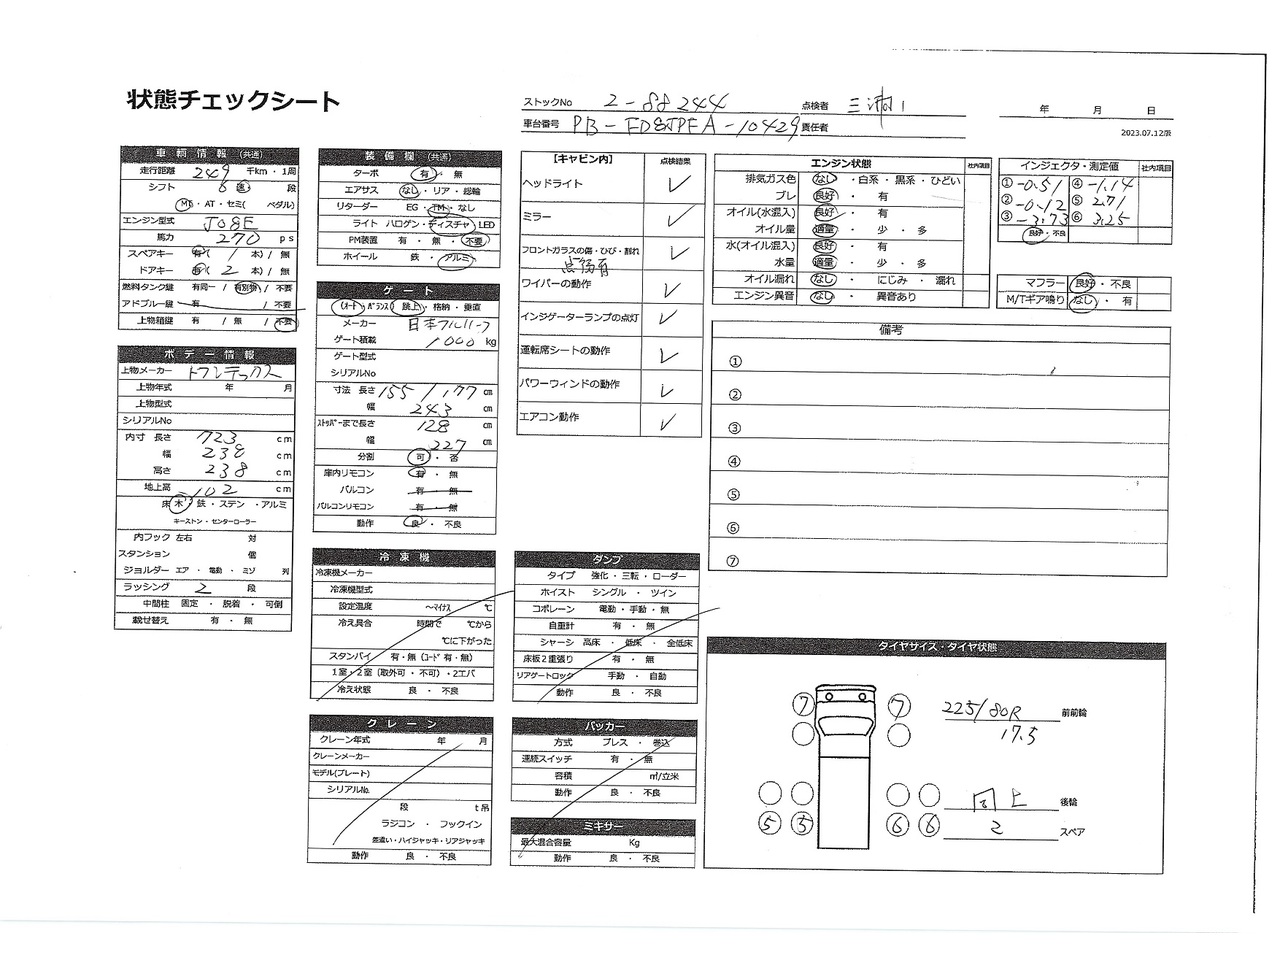 状態チェックシート
ストックNo 2-88244 点検者 三浦
車台番号 PB-FD8JPFA-10429 責任者
年 月 日
2023.07.12版
車輌情報 (共通)
走行距離 249 千km・1周
シフト 6 速 段
MT・AT・セミ( ペダル)
エンジン型式 J08E
馬力 270 ps
スペアキー 有( 1 本)/ 無
ドアキー 有( 2 本)/ 無
燃料タンク鍵 有同一 / 有別物 / 不要
アドブルー鍵 有 / 不要
上物箱鍵 有 / 無 / 不要
ボデー情報
上物メーカー トランテックス
上物年式 年 月
上物型式
シリアルNo
内寸 長さ 723 cm
幅 238 cm
高さ 238 cm
地上高 102 cm
床 木・鉄・ステン・アルミ
キーストン・センターローラー
内フック 左右 対
スタンション 個
ジョルダー エア・電動・ミゾ 列
ラッシング 2 段
中間柱 固定・脱着・可倒
載せ替え 有・無
装備欄 (共通)
ターボ 有・無
エアサス なし・リア・総輪
リターダー EG・TM・なし
ライト ハロゲン・ディスチャ・LED
PM装置 有・無・不要
ホイール 鉄・アルミ
ゲート
(オート・バランス) 跳上・格納・垂直
メーカー 日本フルハーフ
ゲート積載 1000 kg
ゲート型式
シリアルNo
寸法 長さ 155/177 cm
幅 243 cm
ストッパーまで長さ 128 cm
幅 227 cm
分割 可・否
庫内リモコン 有・無
バルコン 有・無
バルコンリモコン 有・無
動作 良・不良
冷凍機
冷凍機メーカー
冷凍機型式
設定温度 ～マイナス ℃
冷え具合 時間で ℃から
℃に下がった
スタンバイ 有・無 (コード 有・無)
1室・2室 (取外可・不可)・2エバ
冷え状態 良・不良
クレーン
クレーン年式 年 月
クレーンメーカー
モデル(プレート)
シリアルNo.
段 t吊
ラジコン・フックイン
差違い・ハイジャッキ・リアジャッキ
動作 良・不良
【キャビン内】 点検結果
ヘッドライト ✓
ミラー ✓
フロントガラスの傷・ひび・割れ ✓
点傷有
ワイパーの動作 ✓
インジゲーターランプの点灯 ✓
運転席シートの動作 ✓
パワーウィンドの動作 ✓
エアコン動作 ✓
ダンプ
タイプ 強化・三転・ローダー
ホイスト シングル・ツイン
コボレーン 電動・手動・無
自重計 有・無
シャーシ 高床・低床・全低床
床板2重張り 有・無
リアゲートロック 手動・自動
動作 良・不良
パッカー
方式 プレス・巻込
連続スイッチ 有・無
容積 ㎥/立米
動作 良・不良
ミキサー
最大混合容量 Kg
動作 良・不良
エンジン状態 社内項目
排気ガス色 なし・白系・黒系・ひどい
ブレ 良好・有
オイル(水混入) 良好・有
オイル量 適量・少・多
水(オイル混入) 良好・有
水量 適量・少・多
オイル漏れ なし・にじみ・漏れ
エンジン異音 なし・異音あり
インジェクタ・測定値 社内項目
① -0.51 ④ -1.14
② -0.12 ⑤ 2.71
③ -3.73 ⑥ 3.25
良好・不良
マフラー 良好・不良
M/Tギア鳴り なし・有
備考
①
②
③
④
⑤
⑥
⑦
タイヤサイズ・タイヤ状態
7 7 225/80R 前前輪
17.5
同上 後輪
5 5 6 6 2 スペア